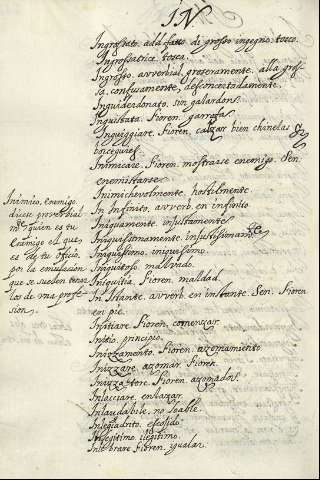 IN
Ingrossato. add. fatto di grosso ingegno. tosco.
Ingrossatrice. tosca.
Ingrosso. averbial. groseramente, alla gros
sa, confusamente, desconcertadamente.
Inguiderdonato, sin galardon.
Inguistara. Fioren. garrafa.
Fioren. calzar bien chinelas
borceguies.
Inimicare. Fioren. mostrarse enemigo. Sen.
enemistarse.
Inimichevolmente, hostilmente
In Infinito, avverb. en infinito
Iniquamente, injustamente
Iniquissimamente, injustissimamte
iniquissimo.
Iniquitoso, malvado.
Iniquitia, Fioren. maldad.
In Istante, avverb. en instante. Sen. Fioren
en pie.
Initiare, Fioren, comenzar.
Initio, principio.
Fioren. azomamiento
Inizzare, azomar. Fioren.
Fioren. azomador.
Inlacciare, enlazar.
Inlaudabile, no loable.
Inlegitimo, ilegitimo.
Fioren, igualar.
Inimico, Enemigo.
dicen proverbial
mte quien es tu
Enemigo el que
es de tu oficio,
por la emulacion
que se suelen tener
los de una profe
sion.